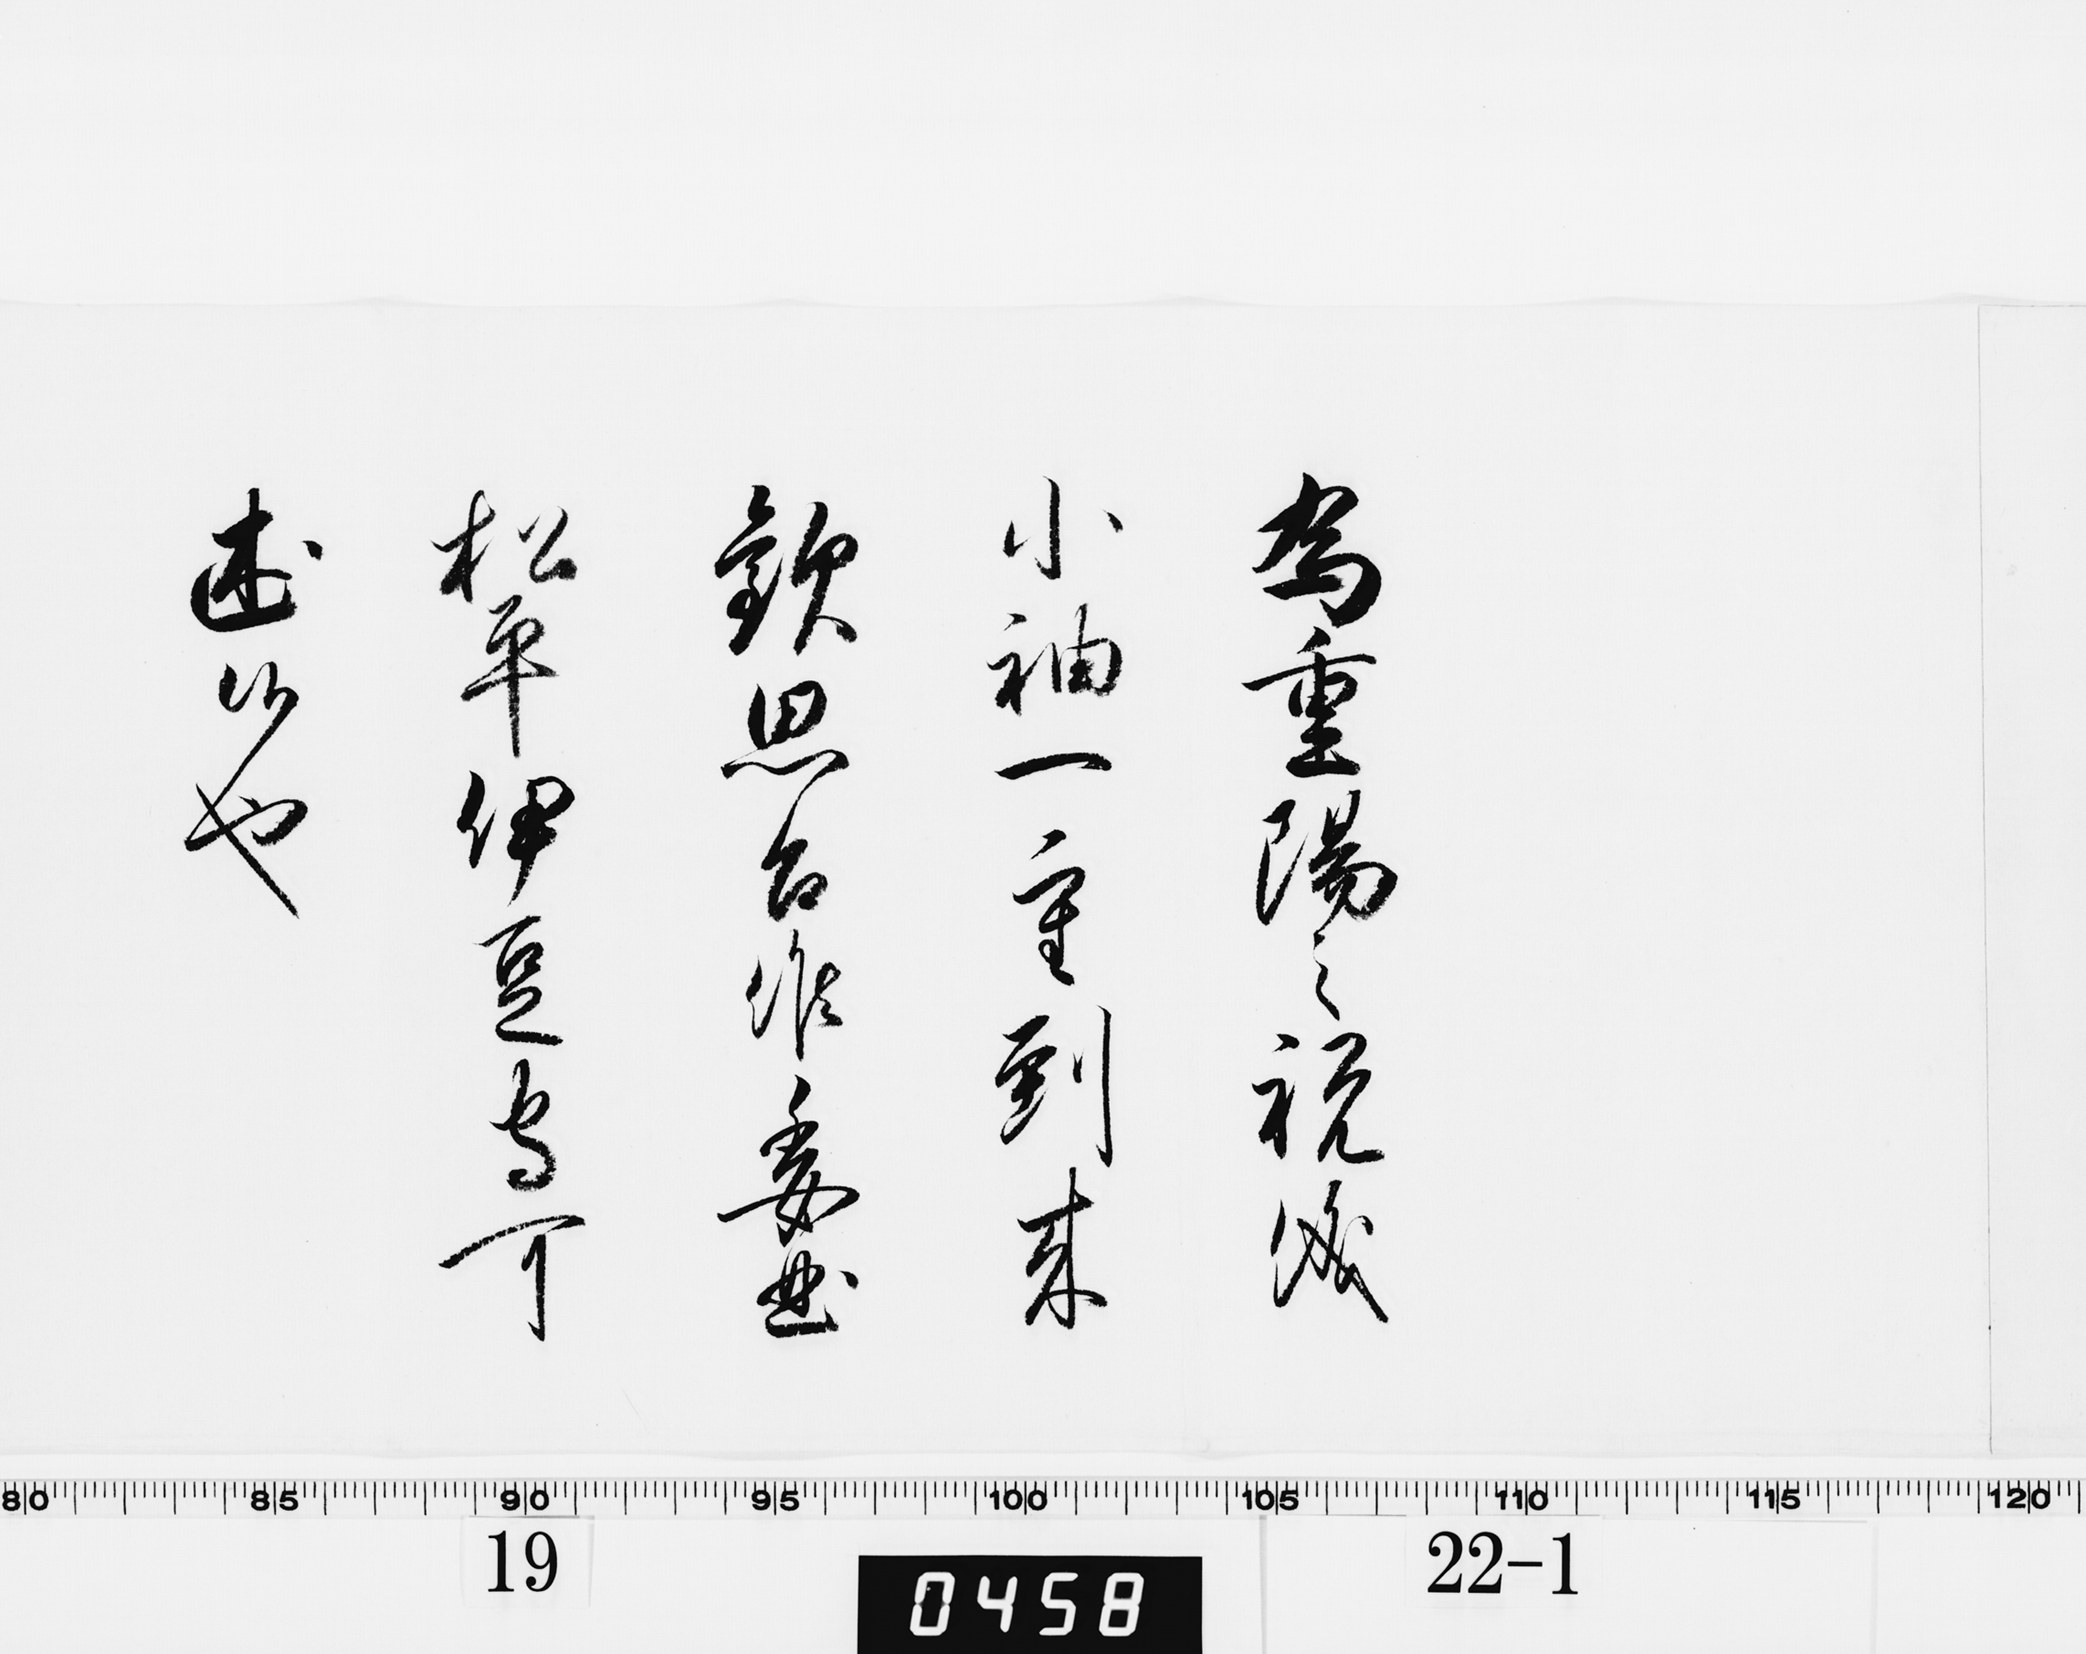 為重陽之祝儀
小袖一重到来
歓思召候委曲
松平伊豆守可
述候也
80 85 90 95 100 105 110 115 120
19
0458
22-1